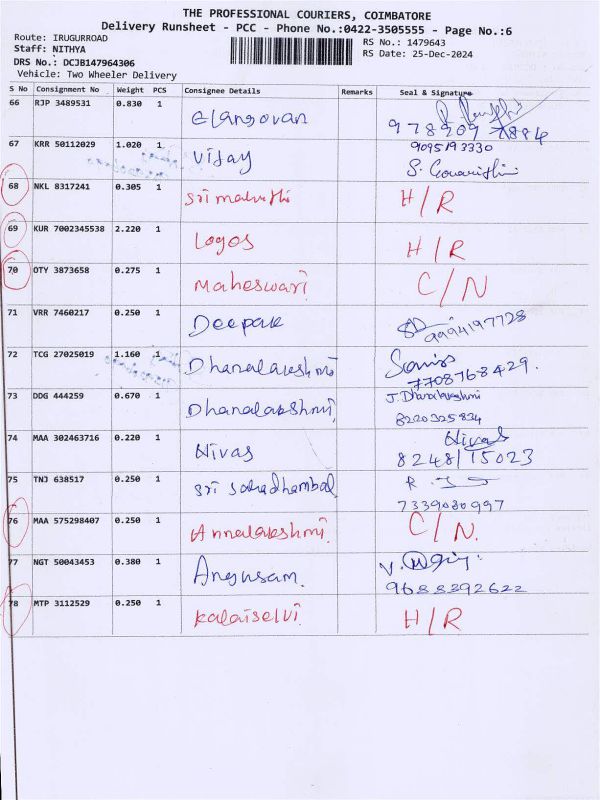 THE PROFESSIONAL COURIERS, COIMBATORE
Delivery Runsheet - PCC - Phone No.:0422-3505555 - Page No.:6
Route: IRUGURROAD
RS No.: 1479643
Staff: NITHYA
RS Date: 25-Dec-2024
DRS No.: DCJB147964306
Vehicle: Two Wheeler Delivery
S No Consignment No Weight PCS Consignee Details Remarks Seal & Signature
66 RJP 3489531 0.830 1 Elangovan
67 KRR 50112029 1.020 1 Vijay 9095193330
68 NKL 8317241 0.305 1 H/R
69 KUR 7002345538 2.220 1 Logos H/R
70 OTY 3873658 0.275 1 Maheswari C/N
71 VRR 7460217 0.250 1 Deepak 9994197728
72 TCG 27025019 1.160 1 Dhanalakshmi 7708768429.
73 DDG 444259 0.670 1 Dhanalakshmi J. Dhanalakshmi
8220325834
74 MAA 302463716 0.220 1 Nivas Nivas
8248115023
75 TNJ 638517 0.250 1 7339080997
76 MAA 575298407 0.250 1 Annalakshmi C/N.
77 NGT 50043453 0.380 1 9688392622
78 MTP 3112529 0.250 1 Kalaiselvi H/R